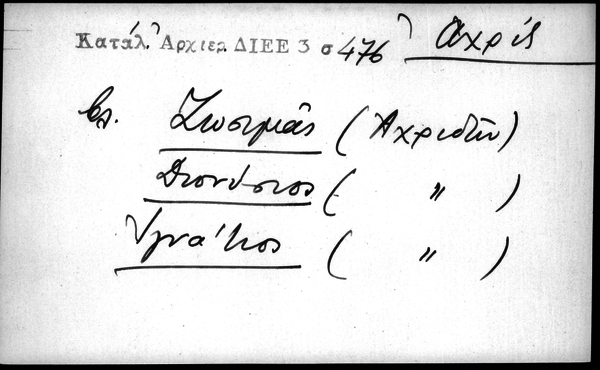 Κατάλ. Ἀρχιερ. ΔΙΕΕ 3 σ 476 Ἀχρίς
βλ. Ζωσιμᾶς (Ἀχριδῶν)
Διονύσιος ( " )
Ἰγνάτιος ( " )